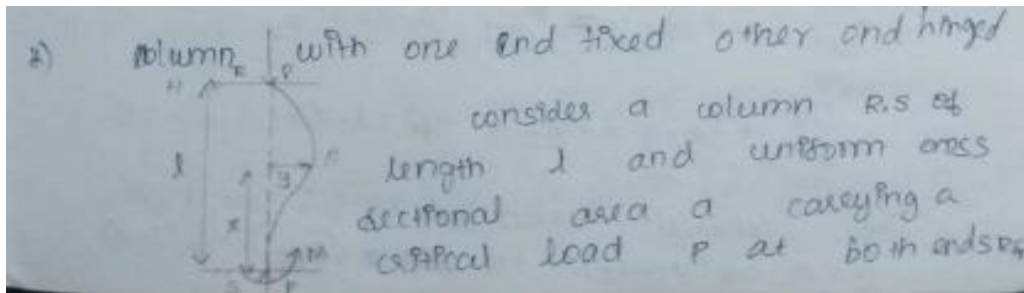 2) column with one end fixed other end hinged
consider a column R.S of
length l and uniform cross
sectional area a carrying a
critical load P at both ends R,
R P
H
l
y
x
M
S P